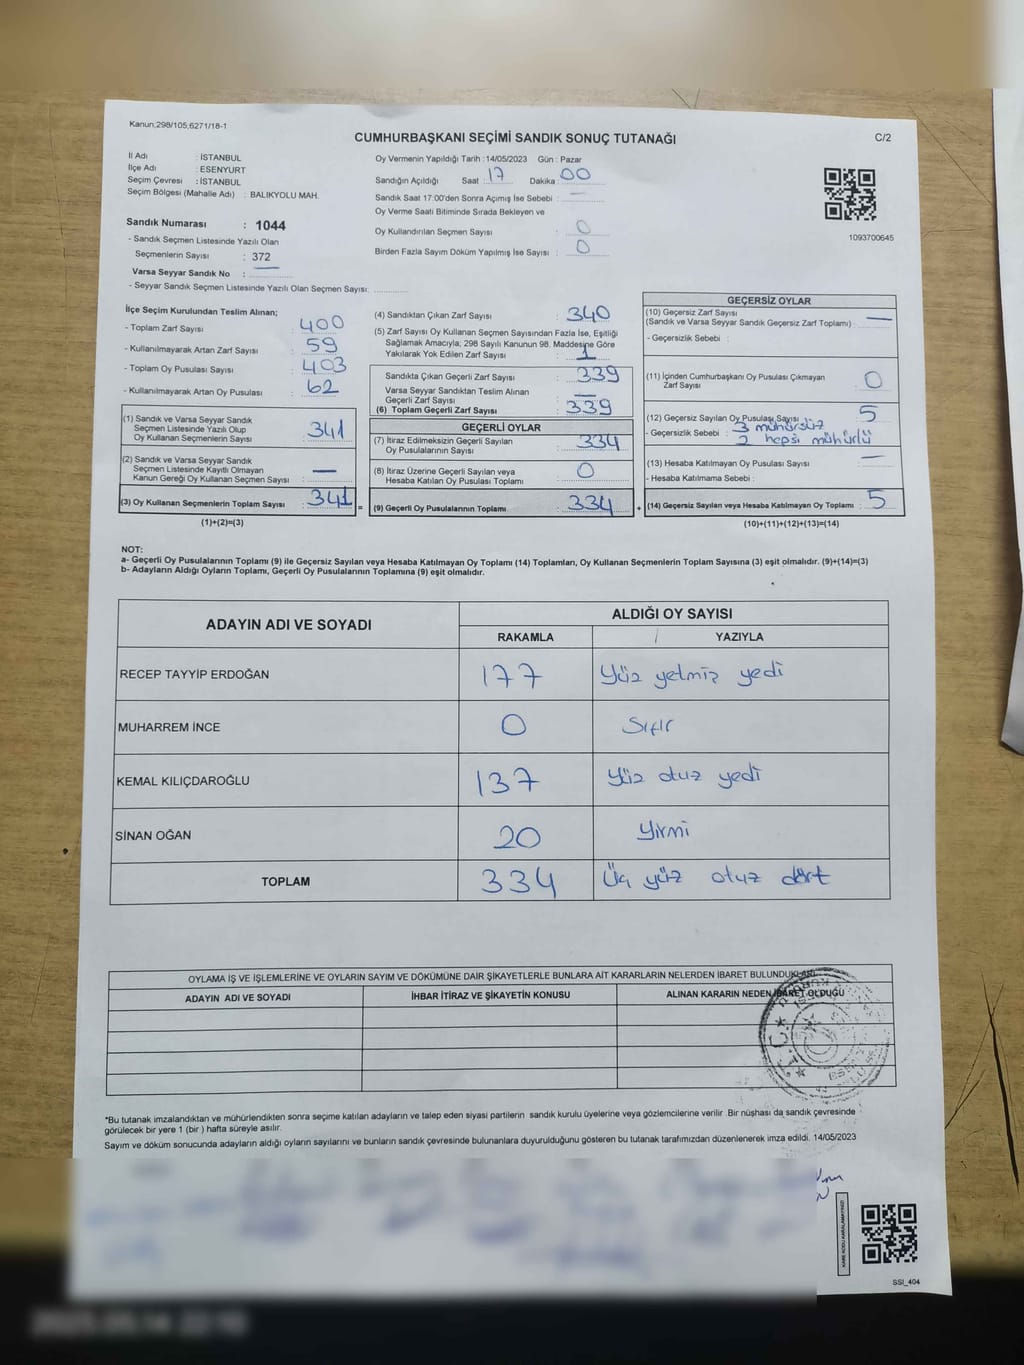 Kanun;298/105;6271/18-1
CUMHURBAŞKANI SEÇİMİ SANDIK SONUÇ TUTANAĞI
C/2
İl Adı : İSTANBUL
İlçe Adı : ESENYURT
Seçim Çevresi : İSTANBUL
Seçim Bölgesi (Mahalle Adı) : BALIKYOLU MAH.
Oy Vermenin Yapıldığı Tarih :14/05/2023 Gün : Pazar
Sandığın Açıldığı Saat 17 Dakika 00
Sandık Saat 17:00'den Sonra Açımış İse Sebebi : —
Oy Verme Saati Bitiminde Sırada Bekleyen ve
Oy Kullandırılan Seçmen Sayısı : 0
Birden Fazla Sayım Döküm Yapılmış İse Sayısı : 0
1093700645
Sandık Numarası : 1044
- Sandık Seçmen Listesinde Yazılı Olan
Seçmenlerin Sayısı : 372
Varsa Seyyar Sandık No : —
- Seyyar Sandık Seçmen Listesinde Yazılı Olan Seçmen Sayısı:
İlçe Seçim Kurulundan Teslim Alınan;
- Toplam Zarf Sayısı : 400
- Kullanılmayarak Artan Zarf Sayısı : 59
- Toplam Oy Pusulası Sayısı : 403
- Kullanılmayarak Artan Oy Pusulası : 62
(1) Sandık ve Varsa Seyyar Sandık
Seçmen Listesinde Yazılı Olup
Oy Kullanan Seçmenlerin Sayısı : 341
(2) Sandık ve Varsa Seyyar Sandık
Seçmen Listesinde Kayıtlı Olmayan
Kanun Gereği Oy Kullanan Seçmen Sayısı : —
(3) Oy Kullanan Seçmenlerin Toplam Sayısı : 341
(1)+(2)=(3)
(4) Sandıktan Çıkan Zarf Sayısı : 340
(5) Zarf Sayısı Oy Kullanan Seçmen Sayısından Fazla İse, Eşitliği
Sağlamak Amacıyla; 298 Sayılı Kanunun 98. Maddesine Göre
Yakılarak Yok Edilen Zarf Sayısı : 1
Sandıkta Çıkan Geçerli Zarf Sayısı : 339
Varsa Seyyar Sandıktan Teslim Alınan
Geçerli Zarf Sayısı : —
(6) Toplam Geçerli Zarf Sayısı : 339
GEÇERLİ OYLAR
(7) İtiraz Edilmeksizin Geçerli Sayılan
Oy Pusulalarının Sayısı : 334
(8) İtiraz Üzerine Geçerli Sayılan veya
Hesaba Katılan Oy Pusulası Toplamı : 0
= (9) Geçerli Oy Pusulalarının Toplamı : 334
GEÇERSİZ OYLAR
(10) Geçersiz Zarf Sayısı
(Sandık ve Varsa Seyyar Sandık Geçersiz Zarf Toplamı) : —
- Geçersizlik Sebebi :
(11) İçinden Cumhurbaşkanı Oy Pusulası Çıkmayan
Zarf Sayısı : 0
(12) Geçersiz Sayılan Oy Pusulası Sayısı : 5
- Geçersizlik Sebebi : 3 mühürsüz
2 hepsi mühürlü
(13) Hesaba Katılmayan Oy Pusulası Sayısı : —
- Hesaba Katılmama Sebebi :
+ (14) Geçersiz Sayılan veya Hesaba Katılmayan Oy Toplamı : 5
(10)+(11)+(12)+(13)=(14)
NOT:
a- Geçerli Oy Pusulalarının Toplamı (9) ile Geçersiz Sayılan veya Hesaba Katılmayan Oy Toplamı (14) Toplamları, Oy Kullanan Seçmenlerin Toplam Sayısına (3) eşit olmalıdır. (9)+(14)=(3)
b- Adayların Aldığı Oyların Toplamı, Geçerli Oy Pusulalarının Toplamına (9) eşit olmalıdır.
ADAYIN ADI VE SOYADI
ALDIĞI OY SAYISI
RAKAMLA YAZIYLA
RECEP TAYYİP ERDOĞAN 177 Yüz yetmiş yedi
MUHARREM İNCE 0 Sıfır
KEMAL KILIÇDAROĞLU 137 Yüz otuz yedi
SİNAN OĞAN 20 Yirmi
TOPLAM 334 Üç yüz otuz dört
OYLAMA İŞ VE İŞLEMLERİNE VE OYLARIN SAYIM VE DÖKÜMÜNE DAİR ŞİKAYETLERLE BUNLARA AİT KARARLARIN NELERDEN İBARET BULUNDUKLARI
ADAYIN ADI VE SOYADI İHBAR İTİRAZ VE ŞİKAYETİN KONUSU ALINAN KARARIN NEDEN İBARET OLDUĞU
*Bu tutanak imzalandıktan ve mühürlendikten sonra seçime katılan adayların ve talep eden siyasi partilerin sandık kurulu üyelerine veya gözlemcilerine verilir .Bir nüshası da sandık çevresinde
görülecek bir yere 1 (bir ) hafta süreyle asılır.
Sayım ve döküm sonucunda adayların aldığı oyların sayılarını ve bunların sandık çevresinde bulunanlara duyurulduğunu gösteren bu tutanak tarafımızdan düzenlenerek imza edildi. 14/05/2023
KARE KODU KARALAMAYINIZ!
SSI_404